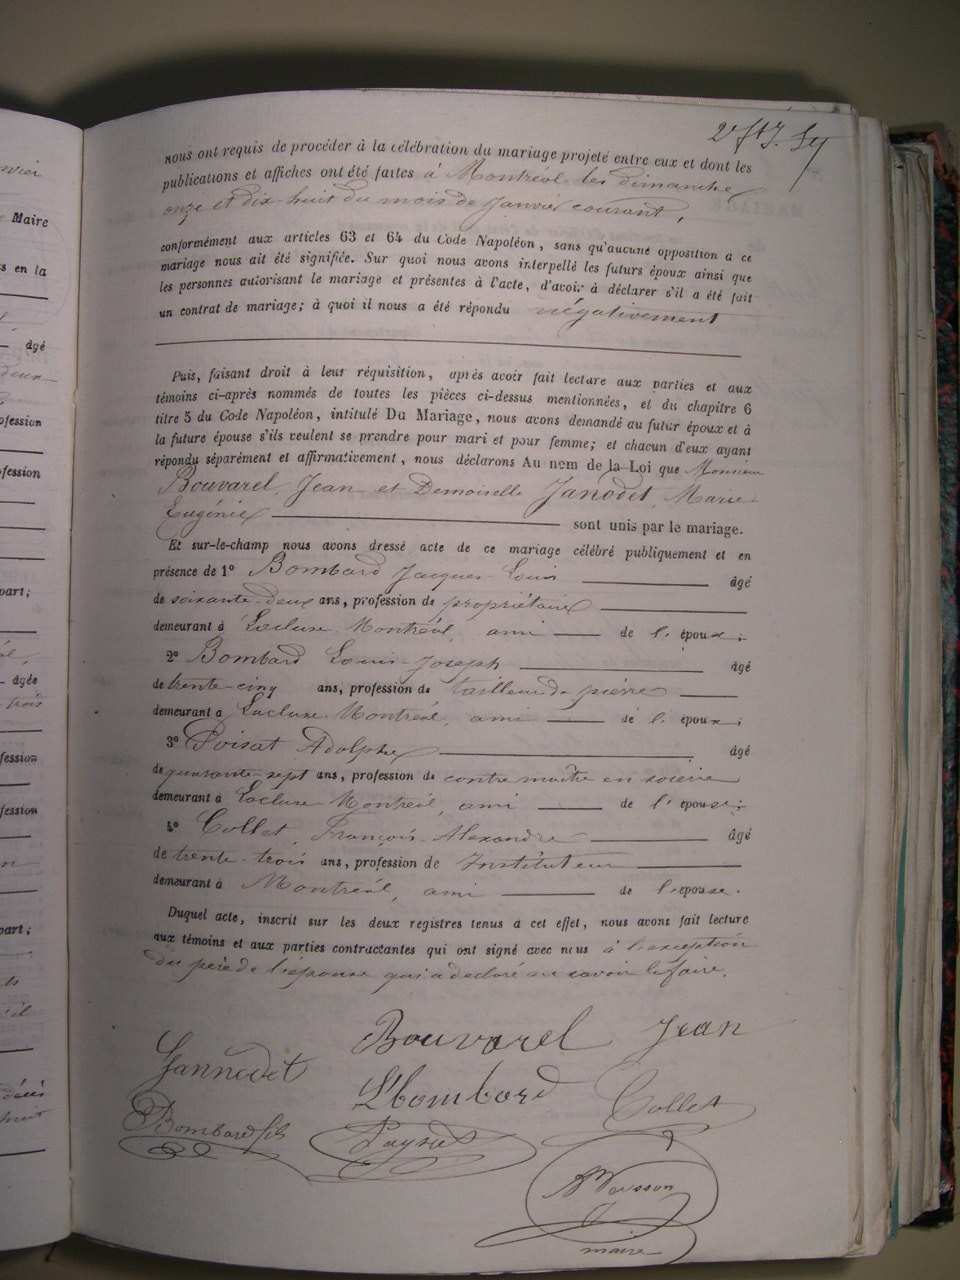 nous ont requis de procéder à la célébration du mariage projeté entre eux et dont les
publications et affiches ont été faites à Montréal les dimanche
onze et dix-huit du mois de Janvier courant,
conformément aux articles 63 et 64 du Code Napoléon, sans qu'aucune opposition à ce
mariage nous ait été signifiée. Sur quoi nous avons interpellé les futurs époux ainsi que
les personnes autorisant le mariage et présentes à l'acte, d'avoir à déclarer s'il a été fait
un contrat de mariage; à quoi il nous a été répondu négativement
Puis, faisant droit à leur réquisition, après avoir fait lecture aux parties et aux
témoins ci-après nommés de toutes les pièces ci-dessus mentionnées, et du chapitre 6
titre 5 du Code Napoléon, intitulé Du Mariage, nous avons demandé au futur époux et à
la future épouse s'ils veulent se prendre pour mari et pour femme; et chacun d'eux ayant
répondu séparément et affirmativement, nous déclarons Au nom de la Loi que Monsieur
Bouvarel, Jean et Demoiselle Janodet, Marie
Eugénie sont unis par le mariage.
Et sur-le-champ nous avons dressé acte de ce mariage célébré publiquement et en
présence de 1° Bombard Jacques-Louis âgé
de soixante-deux ans, profession de propriétaire
demeurant à Lacluse Montréal, ami de l'époux;
2° Bombard Louis-Joseph âgé
de trente-cinq ans, profession de tailleur de pierre
demeurant à Lacluse Montréal, ami de l'époux;
3° Poisat Adolphe âgé
de quarante-sept ans, profession de contre maître en soierie
demeurant à Lacluse Montréal, ami de l'épouse;
4° Collet, François-Alexandre âgé
de trente-trois ans, profession de Instituteur
demeurant à Montréal, ami de l'épouse.
Duquel acte, inscrit sur les deux registres tenus à cet effet, nous avons fait lecture
aux témoins et aux parties contractantes qui ont signé avec nous à l'exception
du père de l'épouse qui a déclaré ne savoir le faire.
Bouvarel Jean
Jannodet
L Bombard
Collet
Bombard fils
maire